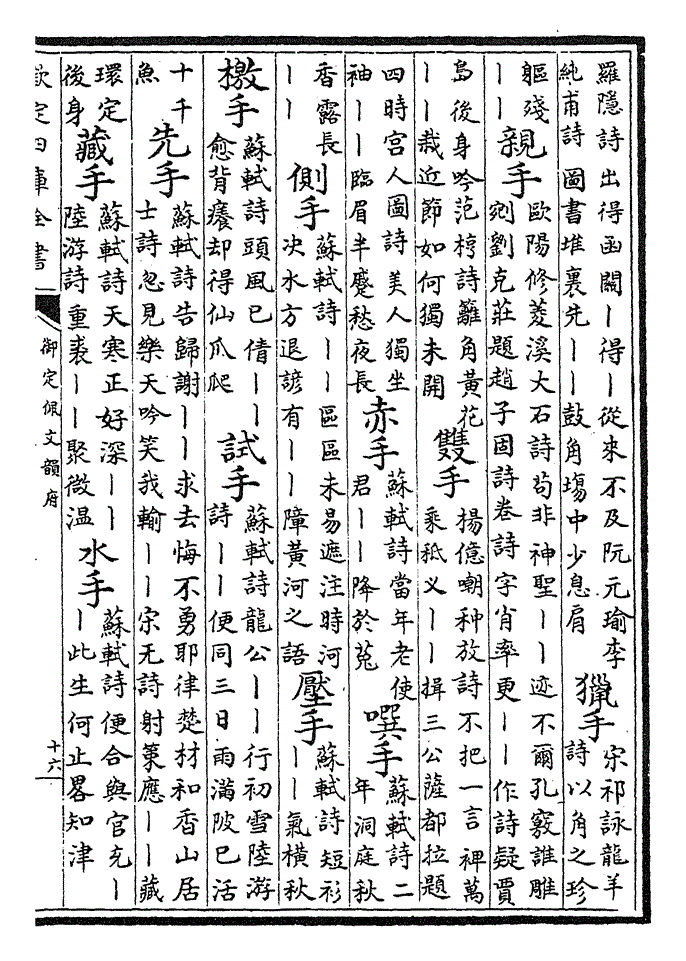 羅隱詩出得函關丨得丨從來不及阮元瑜李
純甫詩圖書堆裏先丨丨鼓角塲中少息肩
獵手
宋祁詠龍羊
詩以角之珍
軀殘
丨丨
親手
歐陽修菱溪大石詩苟非神聖丨丨迹不爾孔竅誰雕
剜劉克莊題趙子固詩卷詩字肖率更丨丨作詩疑賈
島後身吟范梈詩籬角黄花
丨丨栽近節如何獨未開
雙手
揚億嘲种放詩不把一言裨萬
乘秪义丨丨揖三公薩都拉題
四時宫人圖詩美人獨坐
袖丨丨臨眉半蹙愁夜長
赤手
蘇軾詩當年老使
君丨丨降於菟
噀手
蘇軾詩二
年洞庭秋
香露長
丨丨
側手
蘇軾詩丨丨區區未易遮注時河
决水方退諺有丨丨障黄河之語
壓手
蘇軾詩短衫
丨丨氣横秋
檄手
蘇軾詩頭風已倩丨丨
愈背癢却得仙爪爬
試手
蘇軾詩龍公丨丨行初雪陸游
詩丨丨便同三日雨滿陂已活
十千
魚
先手
蘇軾詩告歸謝丨丨求去悔不勇耶律楚材和香山居
士詩忽見樂天吟笑我輸丨丨宋无詩射策應丨丨藏
環定
後身
藏手
蘇軾詩天寒正好深丨丨
陸游詩重裘丨丨聚微温
水手
蘇軾詩便合與官充丨
丨此生何止畧知津
欽定四庫全書
御定佩文韻府
十六